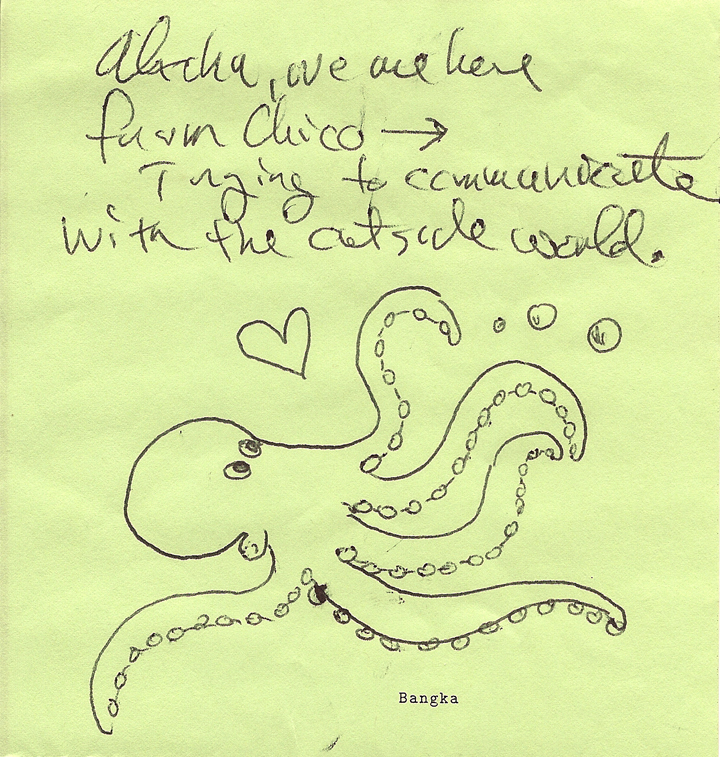 Alaska, we are here
from Chico →
Trying to communicate
with the outside world.
Bangka